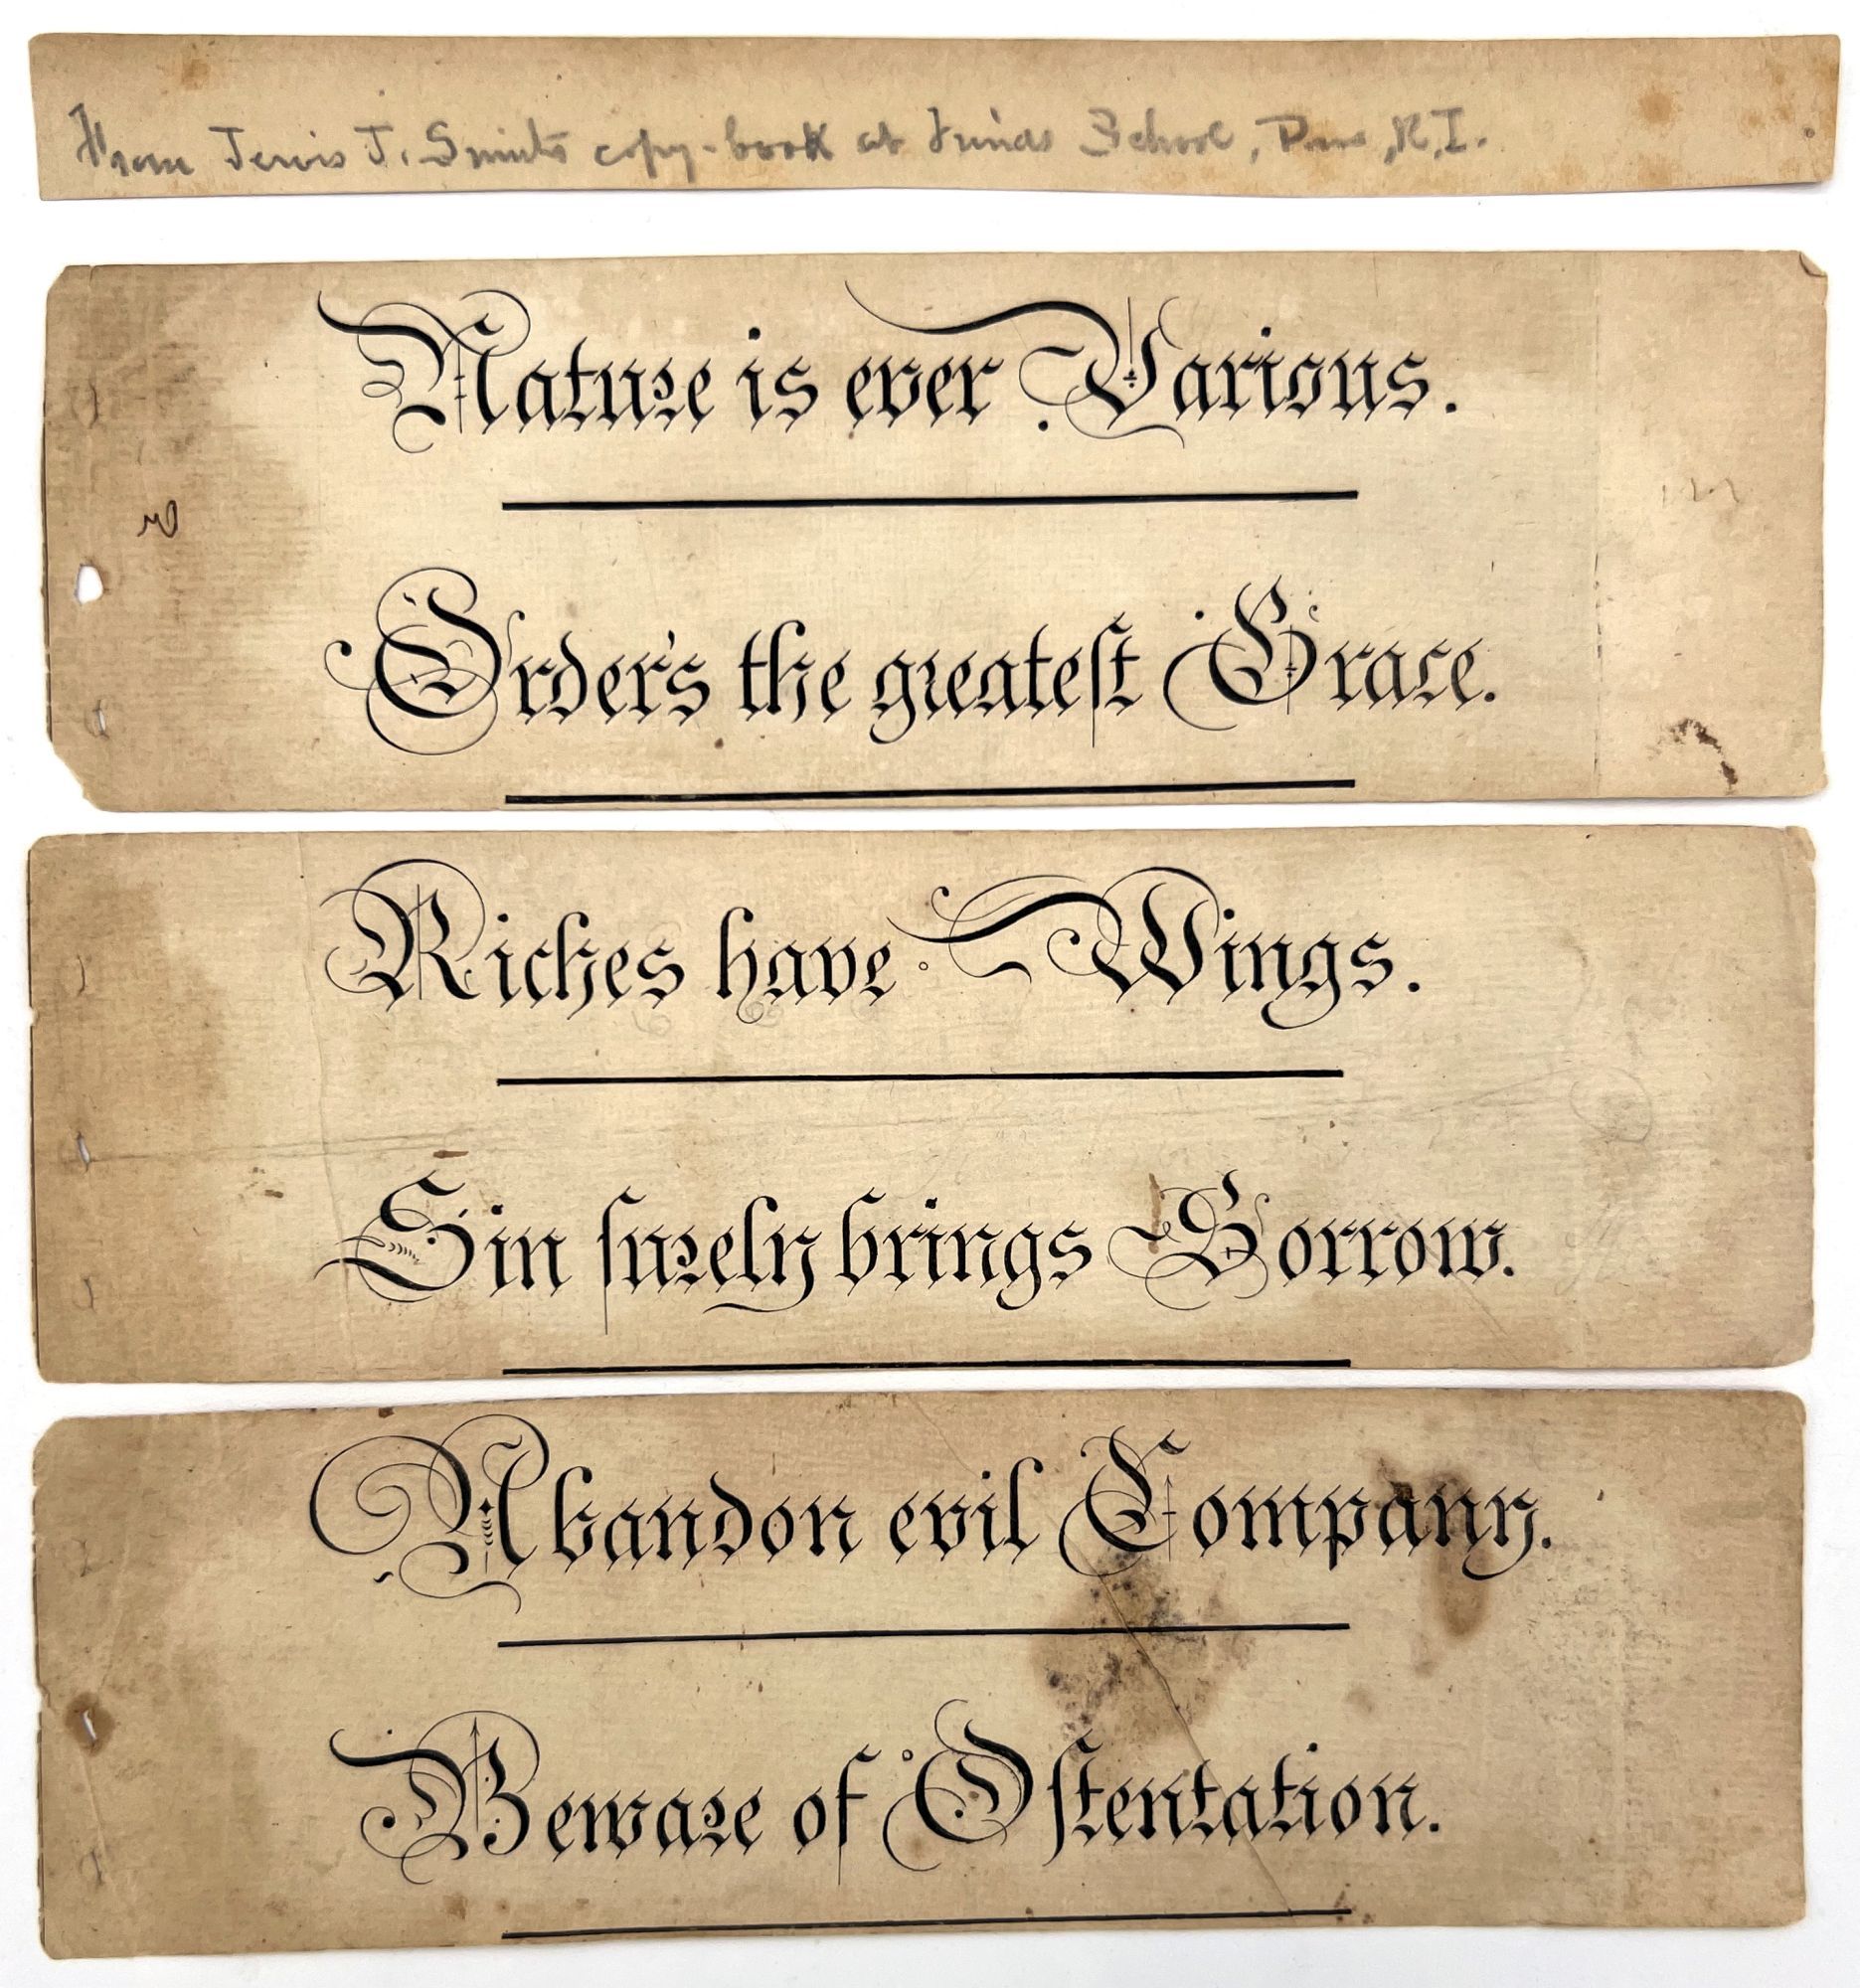 From Jervis J. Smith's copy-book at Friends School, Prov., R.I.
Nature is ever Various.
Order's the greateſt Grace.
Riches have Wings.
Sin ſurely brings Sorrow.
Abandon evil Company.
Beware of Oſtentation.